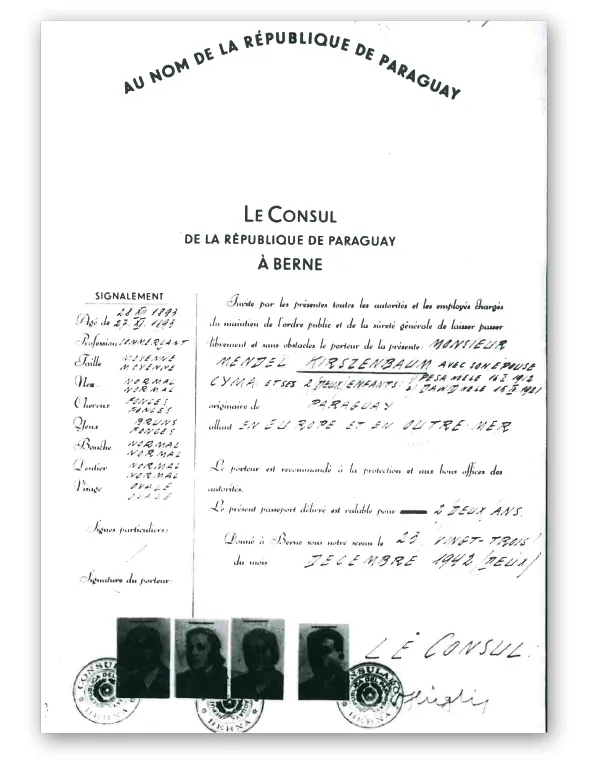 AU NOM DE LA RÉPUBLIQUE DE PARAGUAY
LE CONSUL
DE LA RÉPUBLIQUE DE PARAGUAY
À BERNE
SIGNALEMENT
28 XI 1893
Agé de 27. XI. 1893
Profession COMMERÇANT
Taille MOYENNE
MOYENNE
Nez NORMAL
NORMAL
Cheveux FONCÉS
FONCÉS
Yeux BRUNS
FONCÉS
Bouche NORMAL
NORMAL
Dentier NORMAL
NORMAL
Visage OVALE
OVALE
Signes particuliers:
Signature du porteur:
Invite par les présentes toutes les autorités et les employés chargés
du maintien de l'ordre public et de la sûreté générale de laisser passer
librement et sans obstacles le porteur de la présente: MONSIEUR
MENDEL KIRSZENBAUM AVEC SON ÉPOUSE
CYMA ET SES 2 (DEUX) ENFANTS: NÉE LE 1912
NÉE LE 1921
originaire de PARAGUAY
allant EN EUROPE ET EN OUTRE-MER
Le porteur est recommandé à la protection et aux bons offices des
autorités.
Le présent passeport délivré est valable pour 2 DEUX ANS.
Donné à Berne sous notre sceau le 23 VINGT-TROIS
du mois DECEMBRE 1942 (DEUX)
LE CONSUL:
CONSULADO
BERNA
BERNA
CONSULADO
BERNA